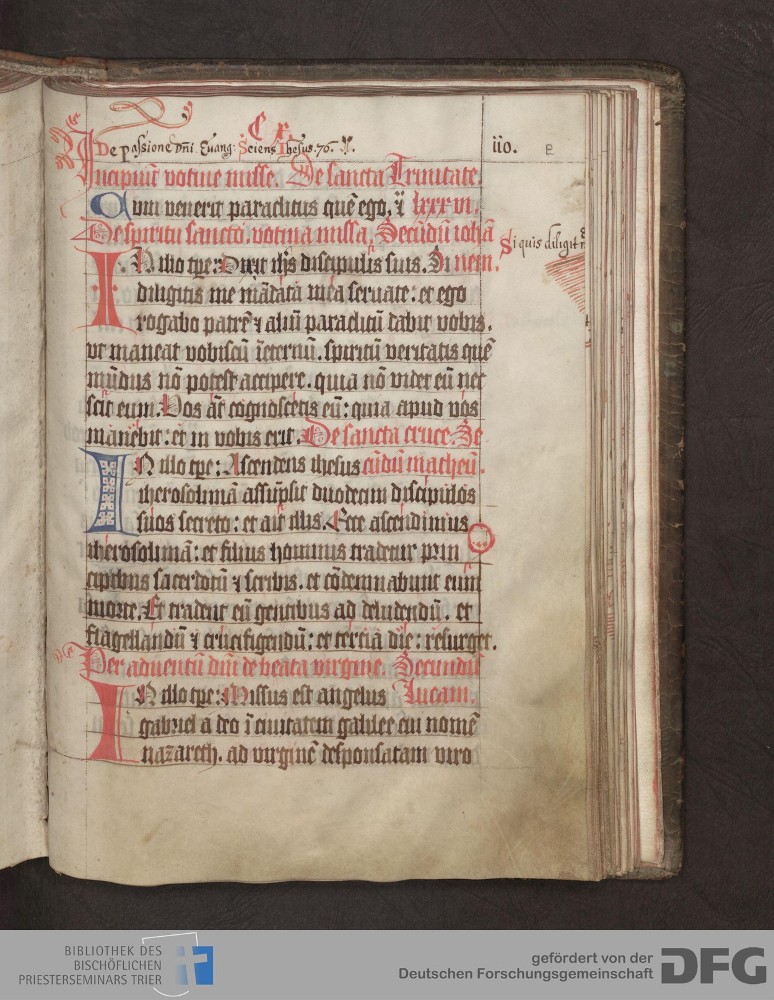 C x
De passione Dñi Euang: Sciens Jhesus. 76.
110. E
Incipiũt votiue misse. De sancta Trinitate.
Cum venerit paraclitus quē ego, lxxxvi.
De spiritu sancto. votiua missa. Secũdũ iohã
Si quis diligit
IN illo tpe: Dixit ihs discipulis suis. Si nem.
diligitis me mãdata mea seruate: et ego
rogabo patrẽ ⁊ aliũ paraclitũ dabit vobis.
vt maneat vobiscũ ĩeternũ. spiritũ veritatis quẽ
mũdus nõ potest accipere. quia nõ videt eũ nec
scit eum. Vos aũt cognoscetis eũ: quia apud vos
manebit: et in vobis erit. De sancta cruce. Se
IN illo tpe: Ascendens ihesus cũdũ matheũ.
iherosolimã assũpsit duodecim discipulos
suos secreto: et ait illis. Ecce ascendimus
iherosolimã: et filius hominis tradetur prin
cipibus sacerdotũ ⁊ scribis. et cõdemnabunt eum
morte. Et tradent eũ gentibus ad deludendũ. et
flagellandũ ⁊ crucifigendũ: et tercia die: resurget.
Per aduentũ dñi de beata virgine. Secundũ
IN illo tpe: Missus est angelus lucam.
gabriel a deo ĩ ciuitatem galilee cui nomẽ
nazareth. ad virginẽ desponsatam viro
BIBLIOTHEK DES
BISCHÖFLICHEN
PRIESTERSEMINARS TRIER
gefördert von der
Deutschen Forschungsgemeinschaft DFG